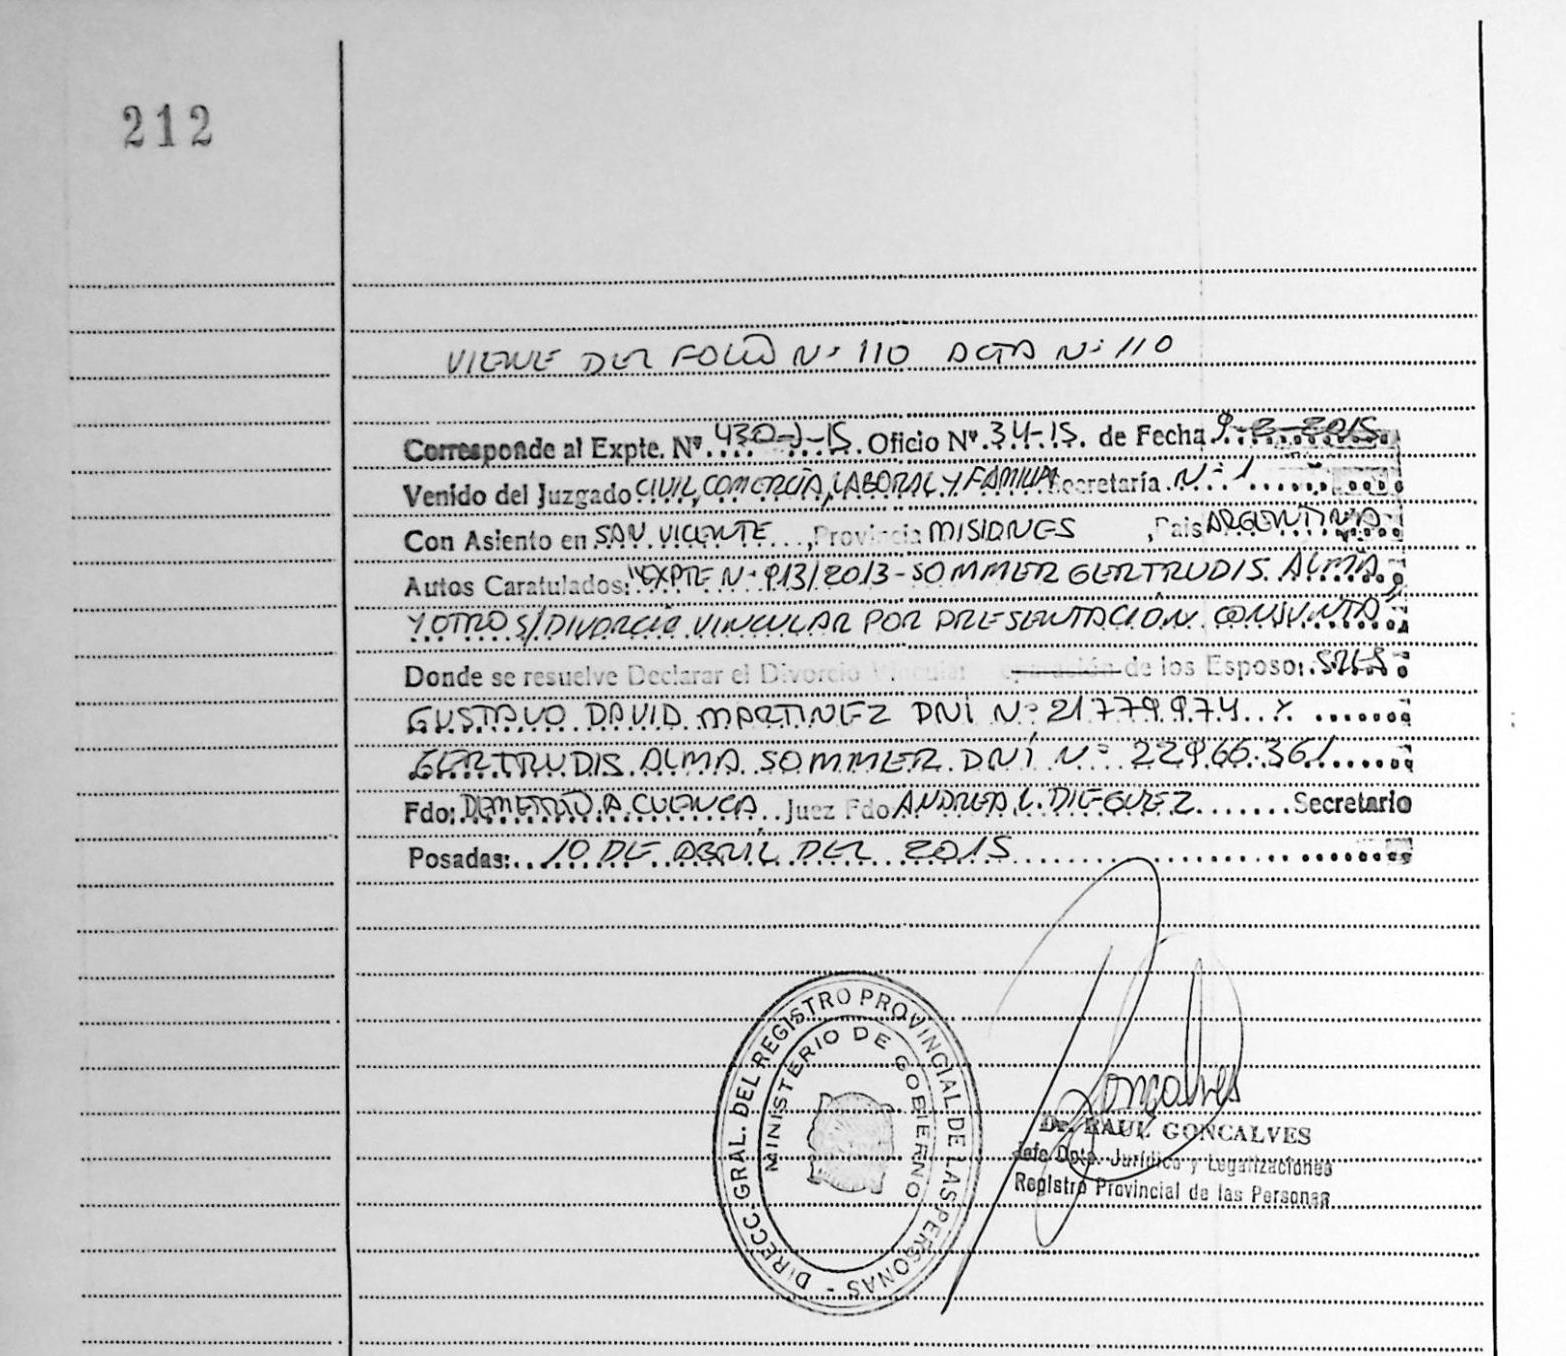 212
VIENE DEL FOLIO Nº 110 ACTA Nº 110
Corresponde al Expte. Nº 430-J-15. Oficio Nº 34-15. de Fecha 9-2-2015
Venido del Juzgado CIVIL, COMERCIAL, LABORAL Y FAMILIA Secretaría Nº 1
Con Asiento en SAN VICENTE, Provincia MISIONES, Pais ARGENTINA
Autos Caratulados: "EXPTE Nº 913/2013 - SOMMER GERTRUDIS ALMA
Y OTRO S/ DIVORCIO VINCULAR POR PRESENTACIÓN CONJUNTA"
Donde se resuelve Declarar el Divorcio Vincular Separación de los Esposos: SRES
GUSTAVO DAVID MARTINEZ DNI Nº 21.779.974 Y
GERTRUDIS ALMA SOMMER DNI Nº 22.966.361
Fdo: DEMETRIO A. CUENCA Juez Fdo ANDREA L. DIEGUEZ Secretario
Posadas: 10 DE ABRIL DEL 2015
DIRECC. GRAL. DEL REGISTRO PROVINCIAL DE LAS PERSONAS -
MINISTERIO DE GOBIERNO
Gonçalves
Dr. RAUL GONCALVES
Jefe Dpto. Jurídico y Legalizaciones
Registro Provincial de las Personas